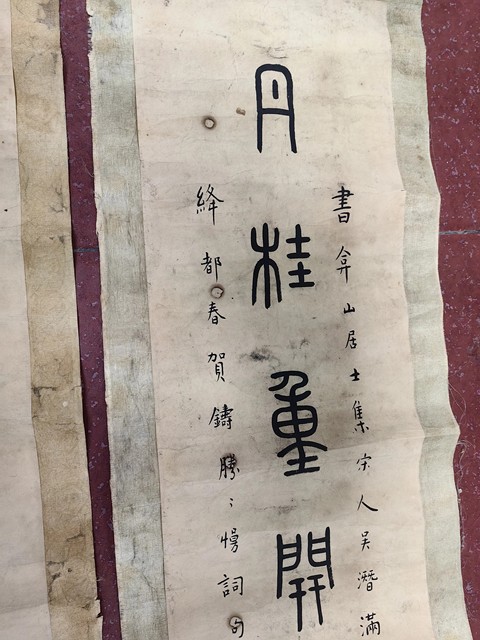 書弇山居士集宋人吳潛滿
丹桂重開
絳都春賀鑄勝〻慢詞句